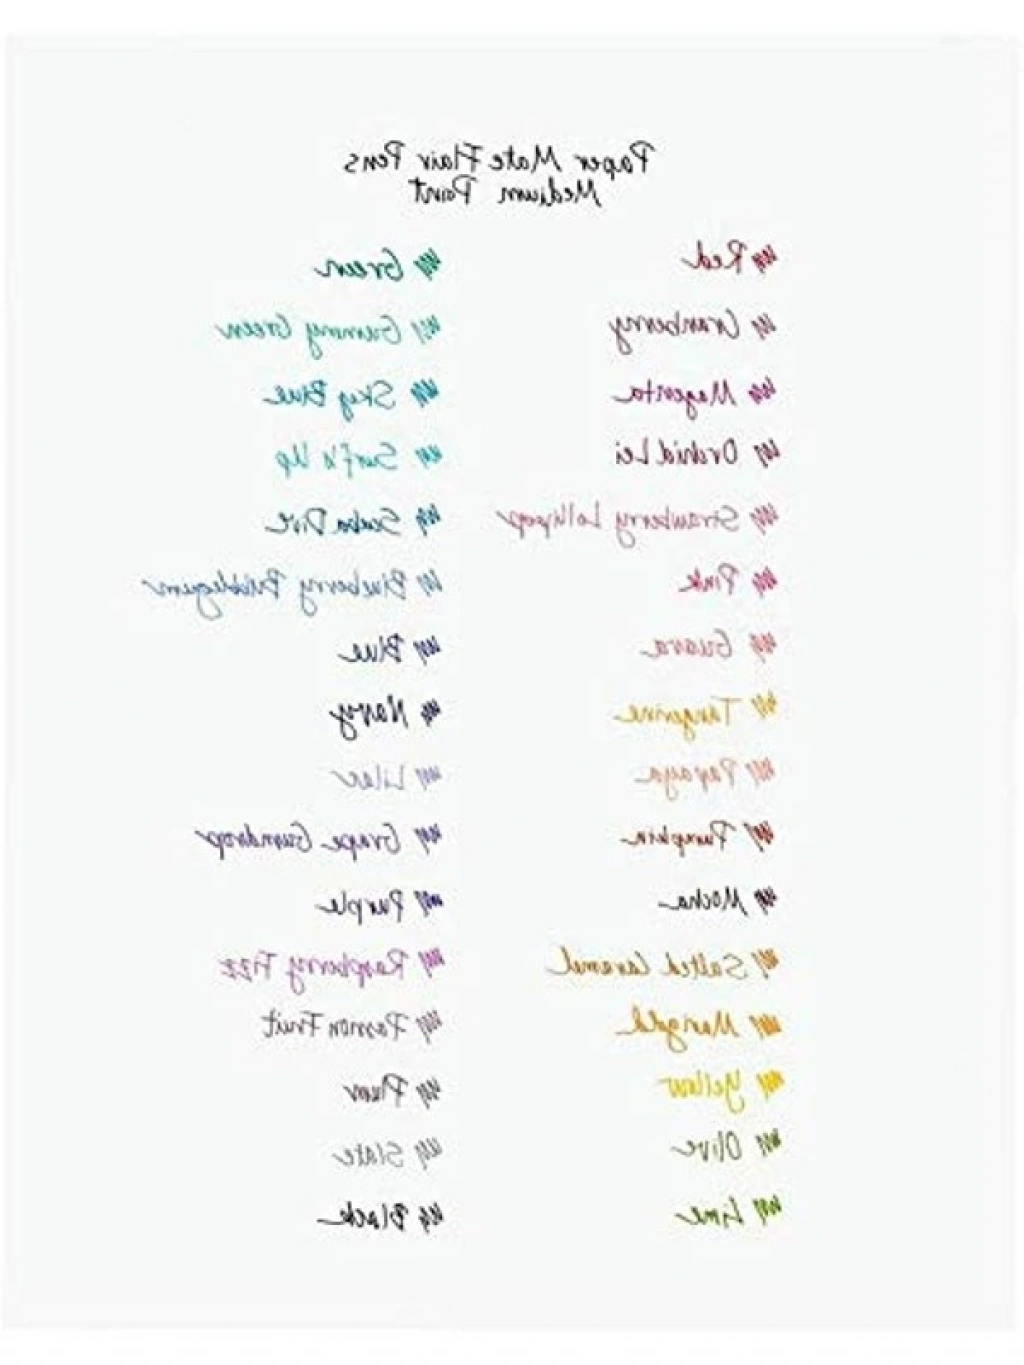 Paper Mate Flair Pens
Medium Point
Red
Cranberry
Magenta
Orchid Lei
Strawberry Lollipop
Pink
Guava
Tangerine
Papaya
Pumpkin
Mocha
Salted Caramel
Marigold
Yellow
Olive
Lime
Green
Gummy Green
Sky Blue
Surf's Up
Scuba Dive
Blueberry Bubblegum
Blue
Navy
Lilac
Grape Gumdrop
Purple
Raspberry Fizz
Passion Fruit
Plum
Slate
Black